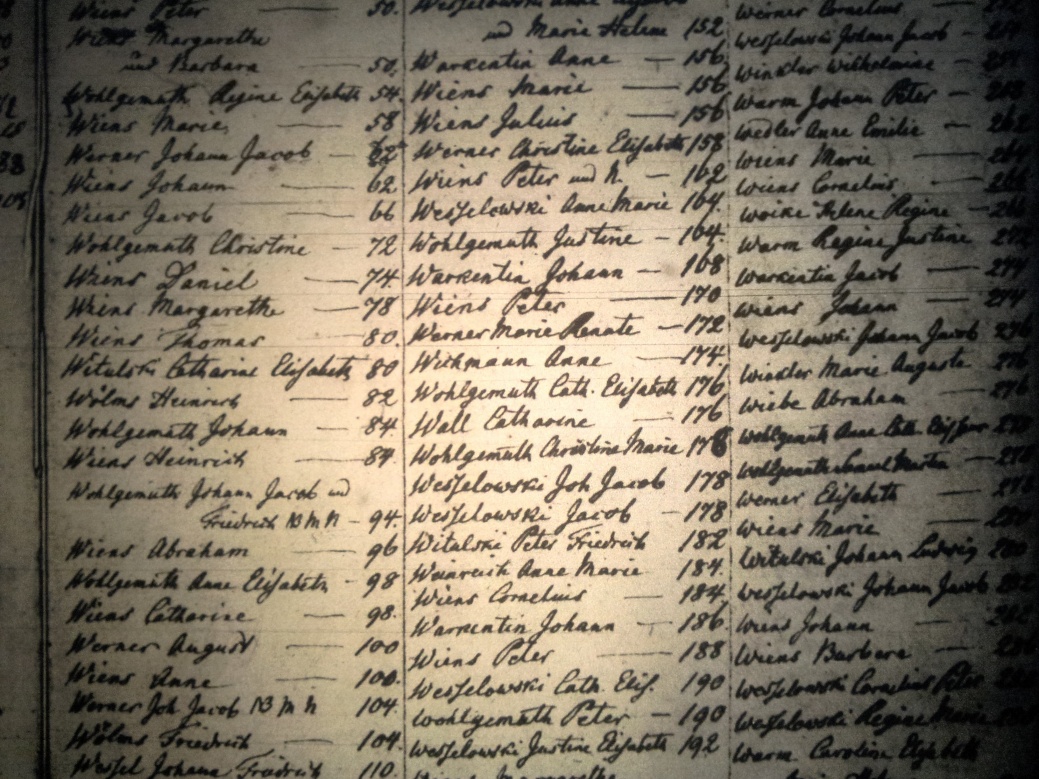 Wiens Peter 50.
Wiens Margarethe
und Barbara — 50.
Wohlgemuth Regine Elisabeth 54.
Wiens Marie, — 58
Werner Johann Jacob —
Wiens Johann — 62.
Wiens Jacob — 66
Wohlgemuth Christine — 72
Wiens Daniel — 74.
Wiens Margarethe — 78
Wiens Thomas — 80.
Witulski Catharine Elisabeth 80
Wölms Heinrich — 82
Wohlgemuth Johann — 84.
Wiens Heinrich — 84.
Wohlgemuth Johann Jacob und
Friedrich — 94.
Wiens Abraham — 96
Wohlgemuth Anne Elisabeth — 98
Wiens Catharine — 98.
Werner August — 100
Wiens Anne — 100.
Werner Joh Jacob 104.
Wölms Friedrich — 104.
Wessel Johann Friedrich 110.
Wesselowski Anne
und Marie Helene 152
Warkentin Anne — 156.
Wiens Marie — 156
Wiens Julius — 156
Werner Christine Elisabeth 158
Wiens Peter und N. — 162
Wesselowski Anne Marie 164.
Wohlgemuth Justine — 164.
Warkentin Johann — 168
Wiens Peter — 170
Werner Marie Renate — 172
Wichmann Anne — 174.
Wohlgemuth Cath. Elisabeth 176
Wall Catharine — 176
Wohlgemuth Christine Marie 178
Wesselowski Joh Jacob 178
Wesselowski Jacob — 178
Witulski Peter Friedrich 182
Weinreich Anne Marie 184.
Wiens Cornelius — 184
Warkentin Johann — 186
Wiens Peter — 188
Wesselowski Cath. Elis. 190
Wohlgemuth Peter — 190
Wesselowski Justine Elisabeth 192
Wiens Margarethe
Werner Cornelius —
Wesselowski Johann Jacob —
Winkler Wilhelmine
Warm Johann Peter —
Wedler Anne Emilie —
Wiens Marie —
Wiens Cornelius —
Woike Helene Regine —
Warm Regine Justine
Warkentin Jacob — 274
Wiens Johann — 274
Wesselowski Johann Jacob
Winkler Marie Auguste
Wiebe Abraham —
Wohlgemuth Anne Cath.
Wohlgemuth Samuel Martin —
Werner Elisabeth —
Wiens Marie —
Witulski Johann Ludwig
Wesselowski Johann Jacob
Wiens Johann —
Wiens Barbara —
Wesselowski Cornelius Peter
Wesselowski Regine Marie
Warm Caroline Elisabeth